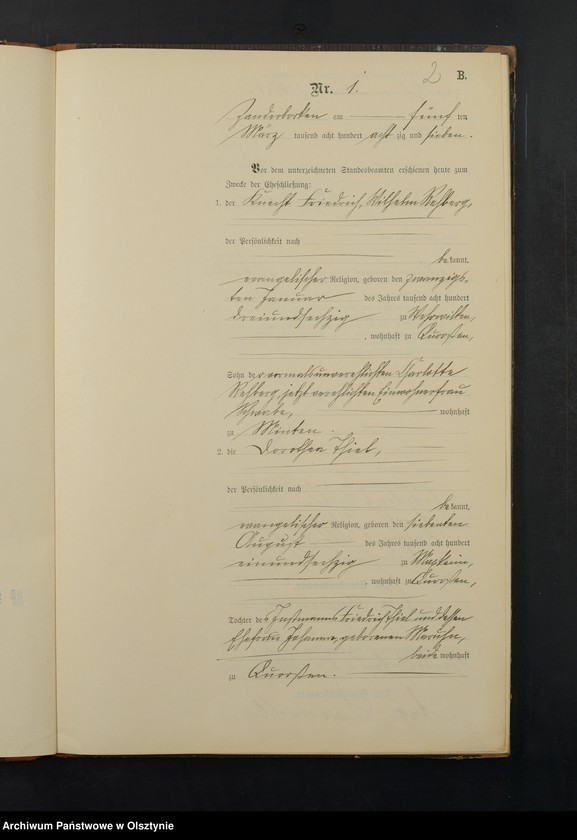 2 B.
Nr. 1.
Zanderborken am fünf ten
März tausend acht hundert acht zig und sieben.
Vor dem unterzeichneten Standesbeamten erschienen heute zum
Zwecke der Eheschließung:
1. der Knecht Friedrich, Wilhelm Rehberg,
der Persönlichkeit nach
be kannt,
evangelischer Religion, geboren den zwanzigs-
ten Januar des Jahres tausend acht hundert
dreiundsechzig zu Wehrwilten,
, wohnhaft zu
Sohn der vormals unverehelichten Karlotte
Rehberg, jetzt verehelichten Einwohnerfrau
Schwabe, wohnhaft
zu Minten.
2. die Dorothea Thiel,
der Persönlichkeit nach
be kannt,
evangelischer Religion, geboren den siebenten
August des Jahres tausend acht hundert
einundsechzig zu
, wohnhaft zu
Tochter des Instmanns Friedrich Thiel und dessen
Ehefrau Johanna, geborenen Maruhn,
beide wohnhaft
zu
Archiwum Państwowe w Olsztynie